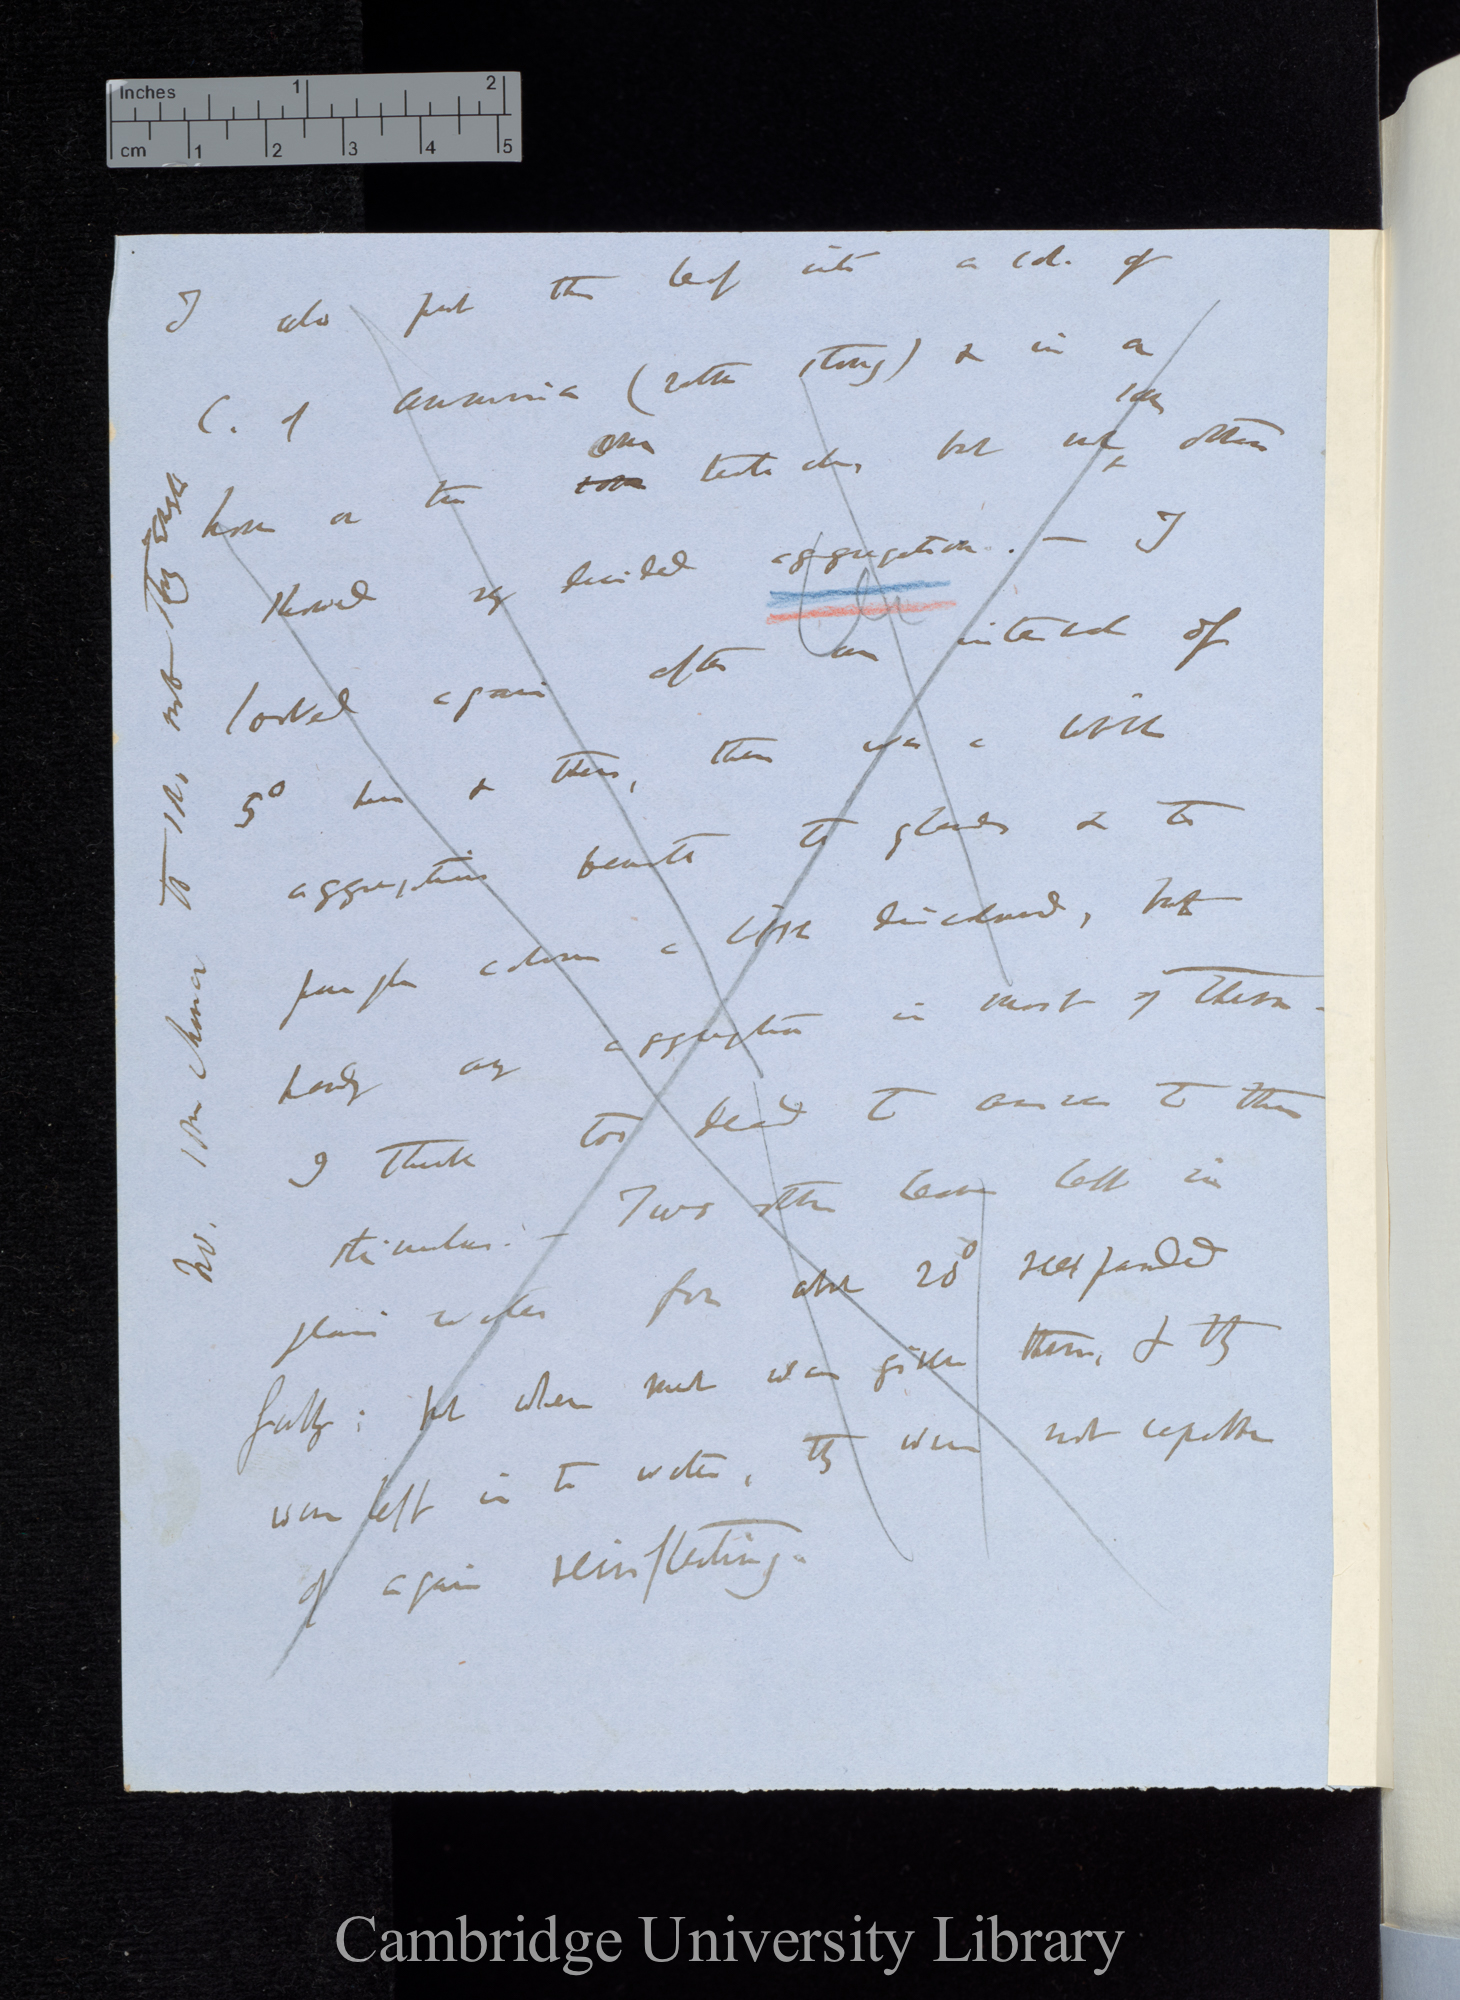 Inches 1 2
cm 1 2 3 4 5
I also put this leaf into a sol. of
C. of ammonia (rather strong) & in a
hour or two one tentacles but not
showed any decided aggregation. — I
looked again after an interval of
5° hrs & then, there was a little
aggregation beneath the glands & the
purple colour a little darkened, but
hardly any aggregation in most of them —
I think too dead to answer to this
stimulus. — Two other leaves left in
plain water for about 20° reexpanded
fully; but when meat was given them, & they
were left in the water, they were not capable
of again reinflecting.
No. some chance to it, not long enough
Cambridge University Library